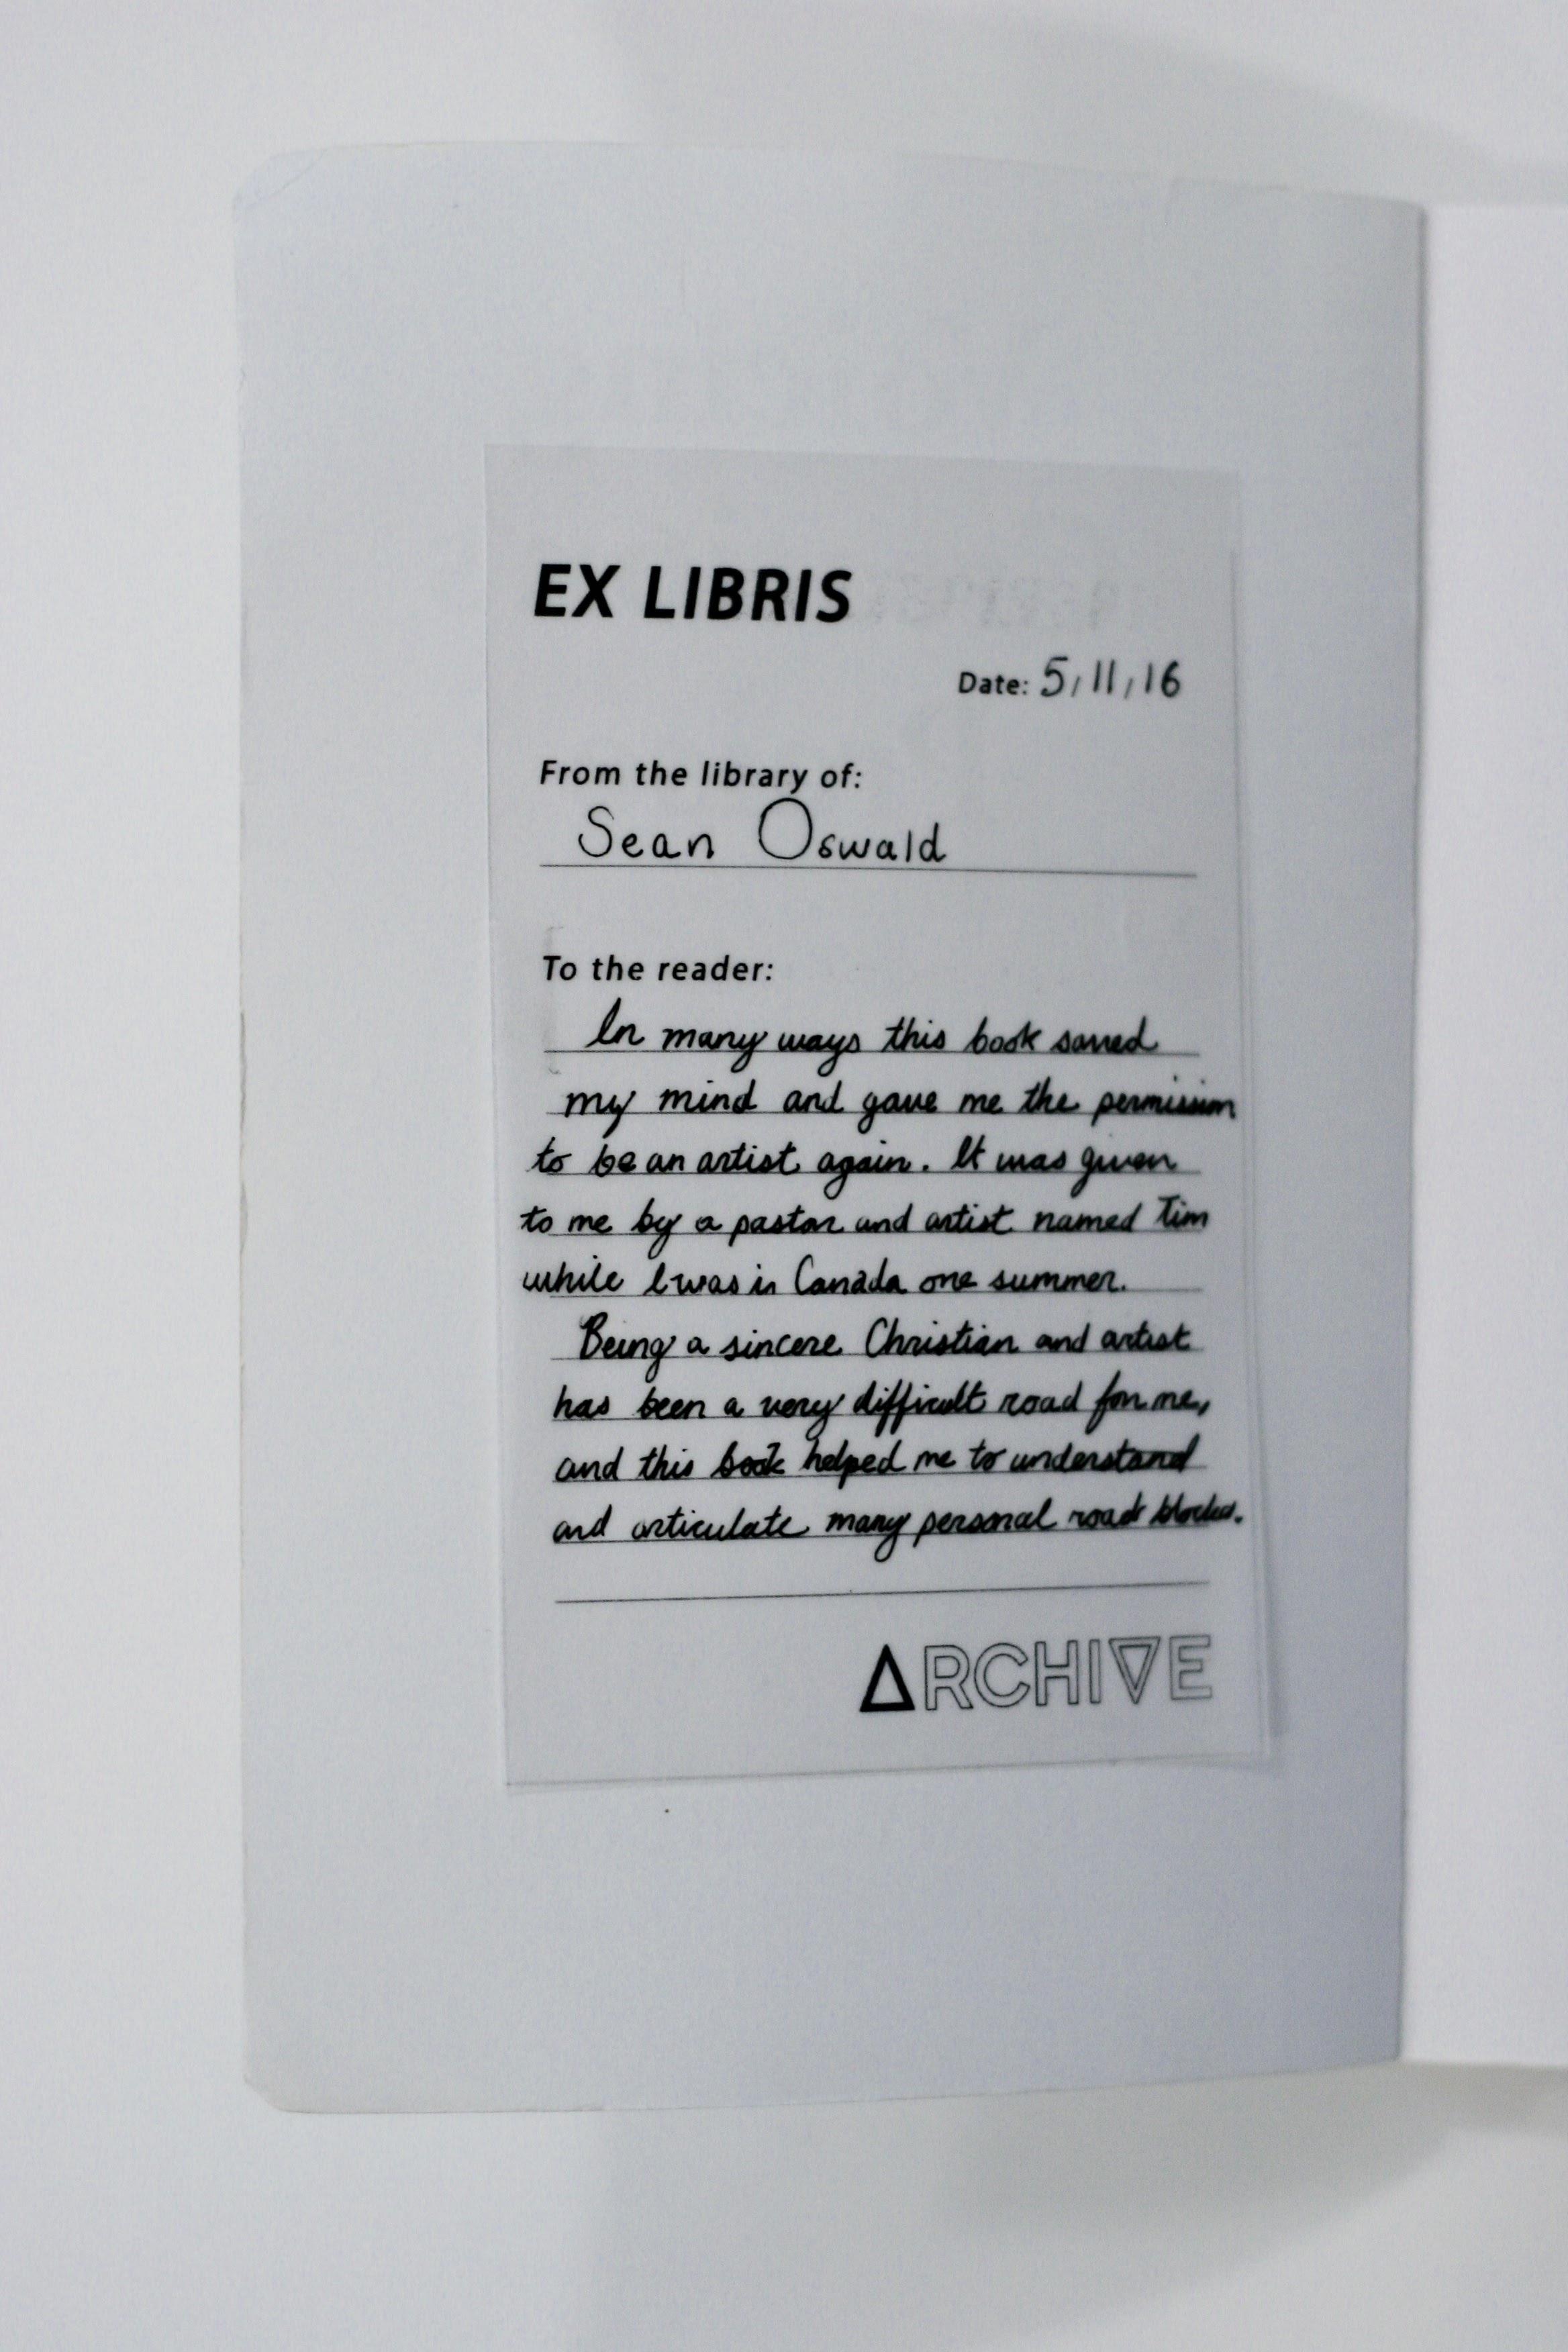 EX LIBRIS
Date: 5/11/16
From the library of:
Sean Oswald
To the reader:
In many ways this book saved
my mind and gave me the permission
to be an artist again. It was given
to me by a pastor and artist named Tim
while I was in Canada one summer.
Being a sincere Christian and artist
has been a very difficult road for me,
and this book helped me to understand
and articulate many personal road blocks.
ARCHIVE